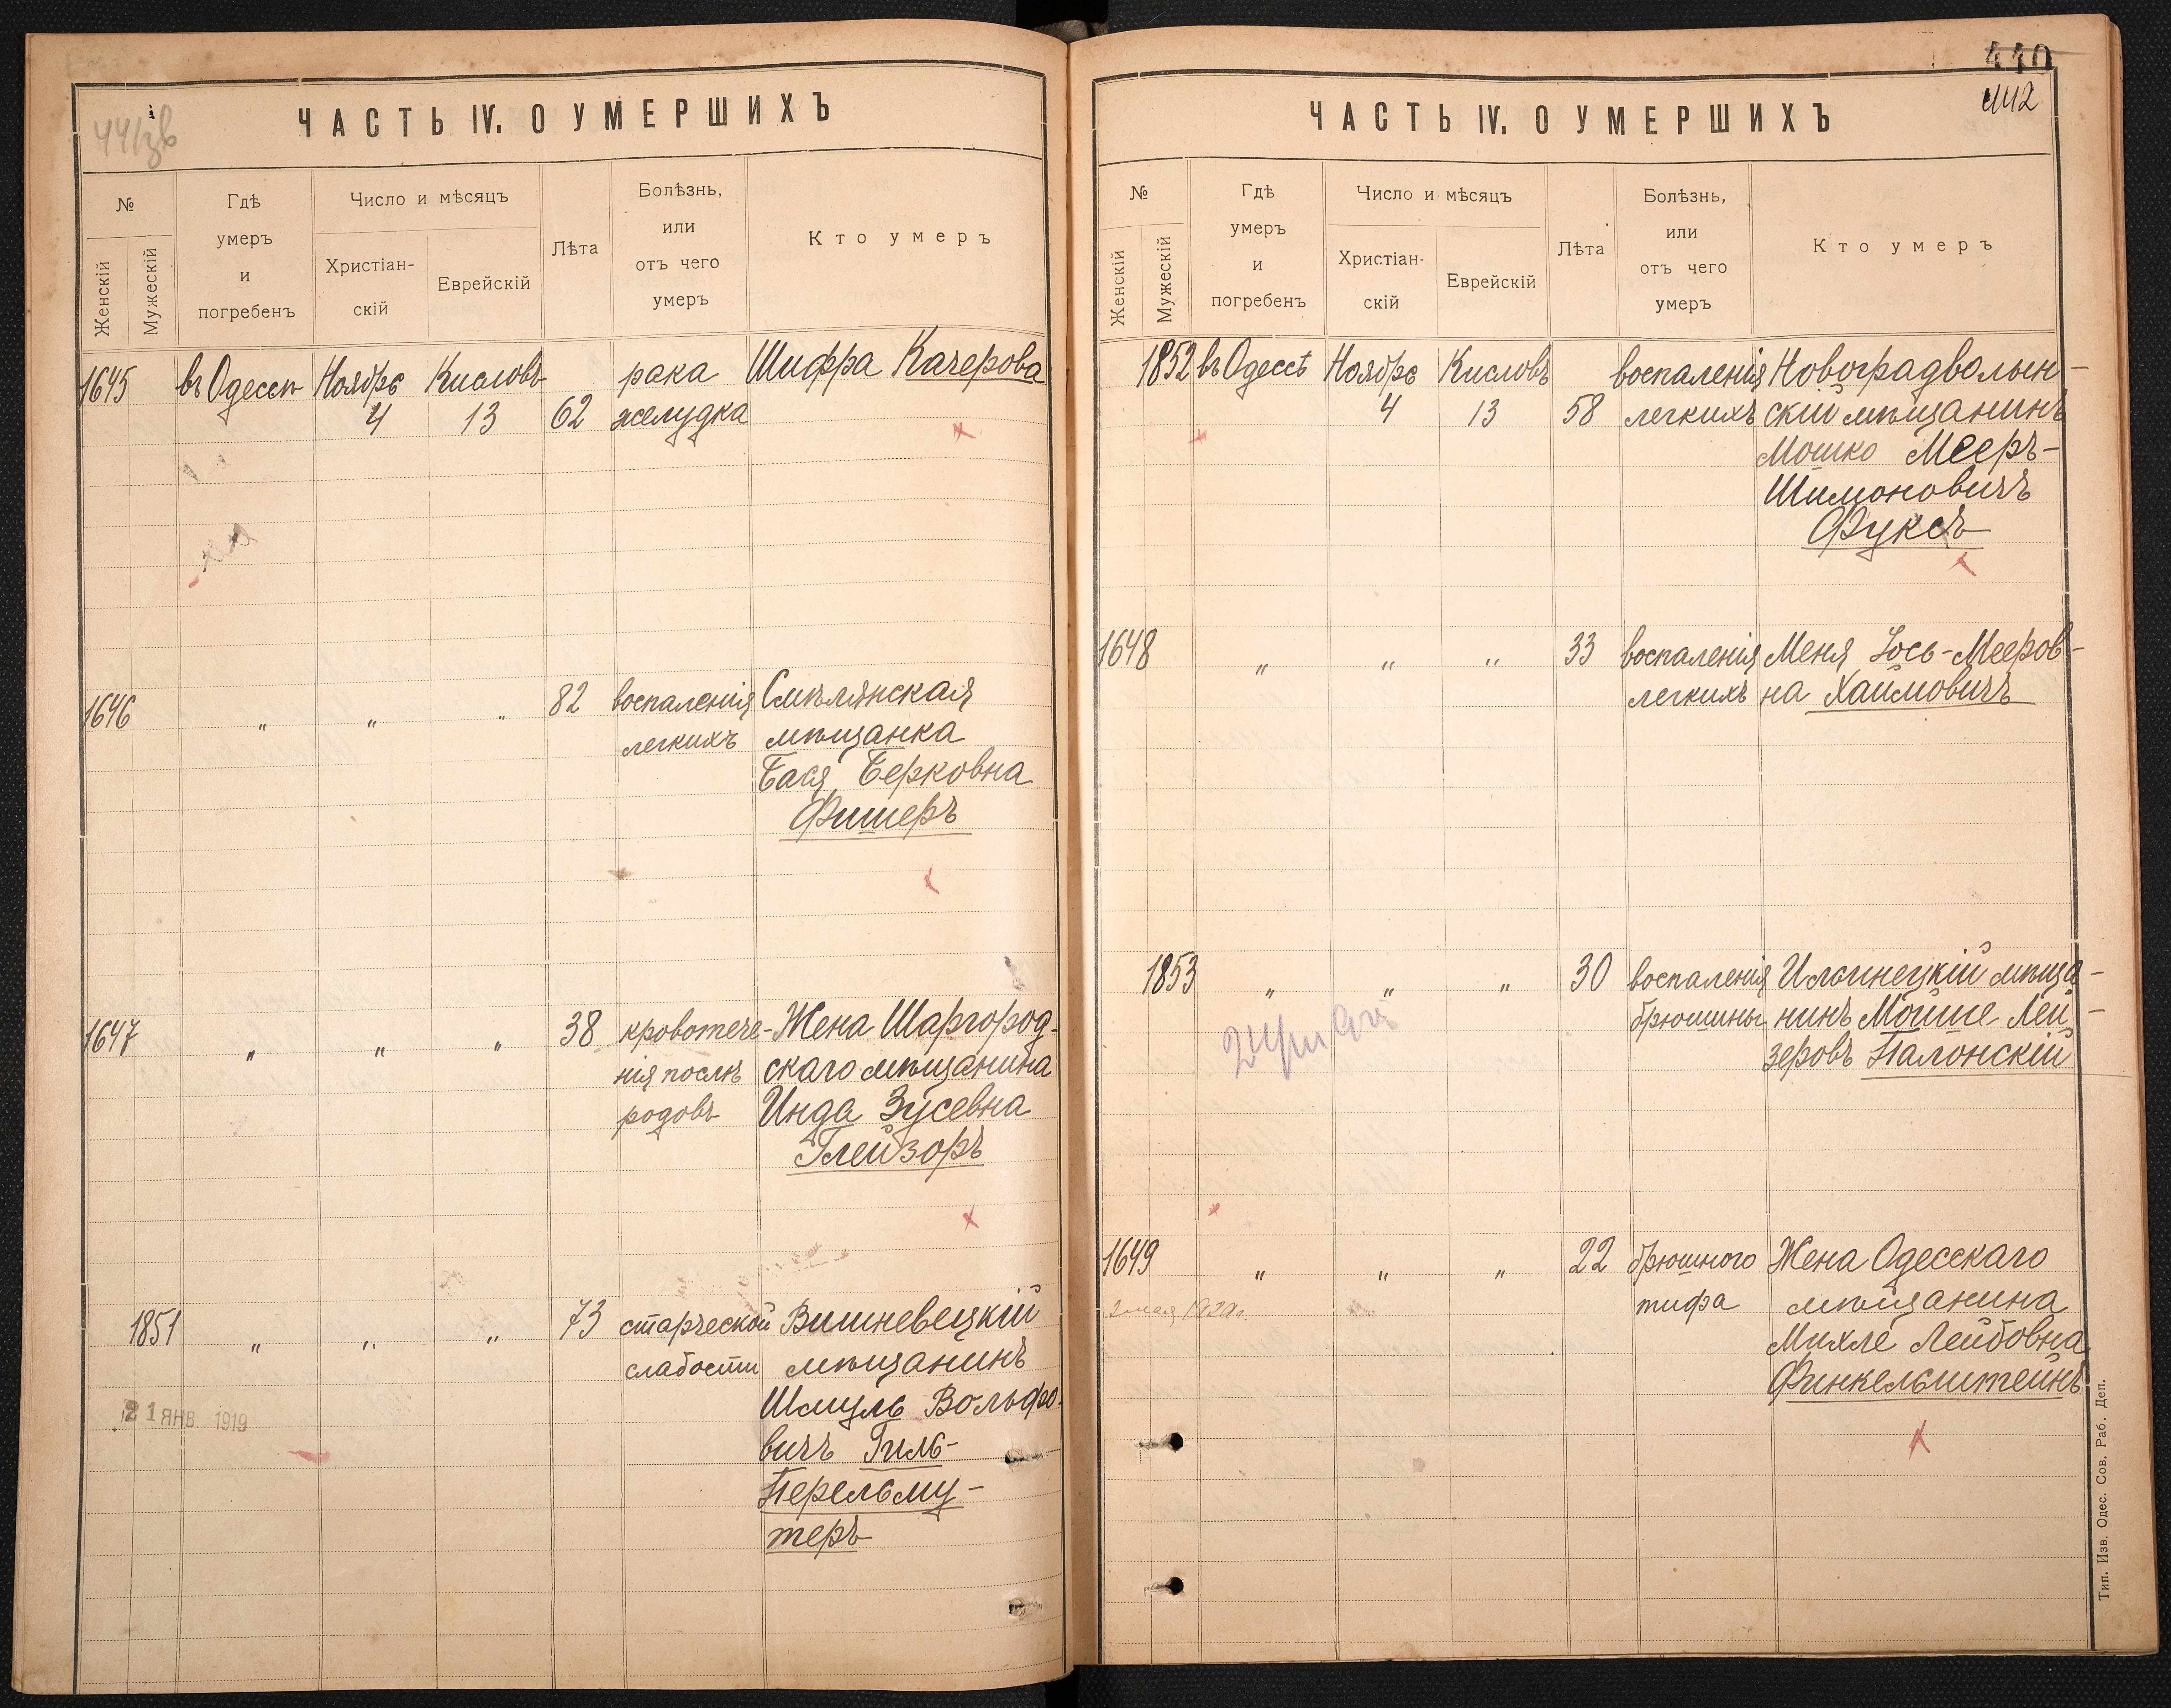 ЧАСТЬ IV. О УМЕРШИХЪ
№
Женскій
Мужескій
Гдѣ
умеръ
и
погребенъ
Число и мѣсяцъ
Христіан-
скій
Еврейскій
Лѣта
Болѣзнь,
или
отъ чего
умеръ
Кто умеръ
1645 въ Одессѣ Ноября Кисловъ рака Шифра Качерова
4 13 62 желудка
1646 " " " 82 воспаленія Смѣлянская
легкихъ мѣщанка
Бася Берковна
Фишеръ
1647 " " " 38 кровотече- Жена Шаргород-
нія послѣ скаго мѣщанина
родовъ Инда Зусевна
Глейзоръ
1851 " " " 73 старческой Вишневецкій
слабости мѣщанинъ
21 ЯНВ. 1919
Шмуль Вольфо-
вичъ Гиль-
Перельму-
теръ
440
442
ЧАСТЬ IV. О УМЕРШИХЪ
№
Женскій
Мужескій
Гдѣ
умеръ
и
погребенъ
Число и мѣсяцъ
Христіан-
скій
Еврейскій
Лѣта
Болѣзнь,
или
отъ чего
умеръ
Кто умеръ
1852 въ Одессѣ Ноября Кисловъ воспаленія Новоградволын-
4 13 58 легкихъ скій мѣщанинъ
Мошко Мееръ-
Шимоновичъ
Фуксъ
1648 " " " 33 воспаленія Меня Іось-Мееров-
легкихъ на Хаимовичъ
1853 " " " 30 воспаленія Ильинецкій мѣща-
брюшины нинъ Мойше Лей-
зеровъ Палонскій
1649 " " " 22 брюшного Жена Одесскаго
тифа мѣщанина
Михле Лейбовна
Финкельштейнъ
Тип. Изв. Одес. Сов. Раб. Деп.